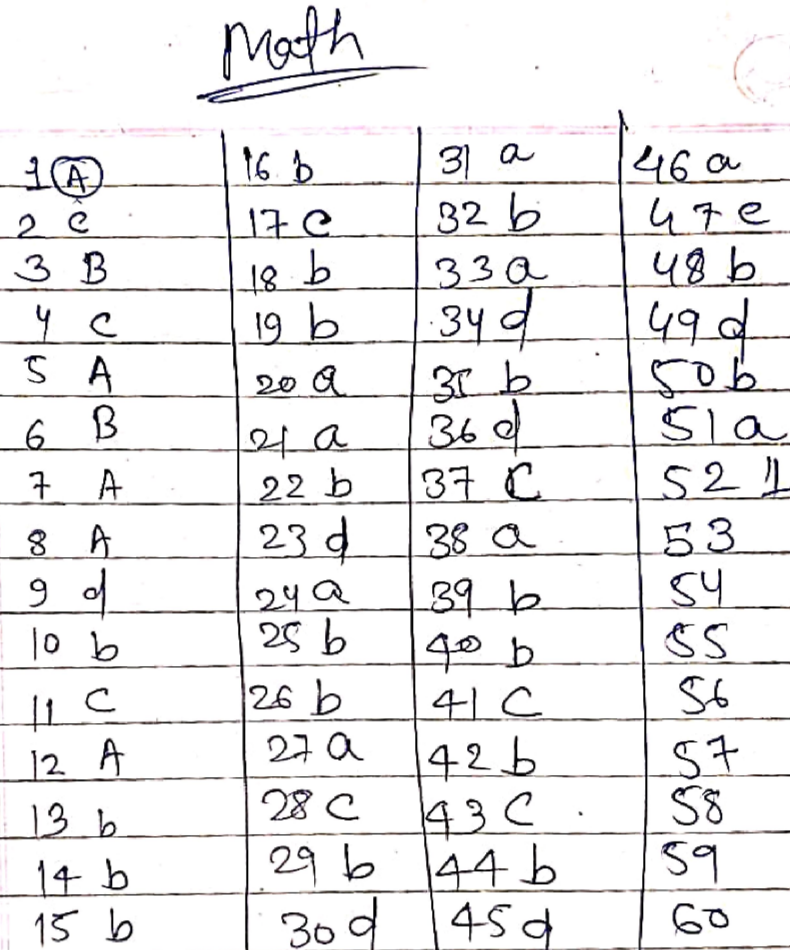 Math
1 A 16 b 31 a 46 a
2 c 17 c 32 b 47 c
3 B 18 b 33 a 48 b
4 c 19 b 34 d 49 d
5 A 20 a 35 b 50 b
6 B 21 a 36 d 51 a
7 A 22 b 37 C 52 11
8 A 23 d 38 a 53
9 d 24 a 39 b 54
10 b 25 b 40 b 55
11 C 26 b 41 C 56
12 A 27 a 42 b 57
13 b 28 C 43 C 58
14 b 29 b 44 b 59
15 b 30 d 45 d 60